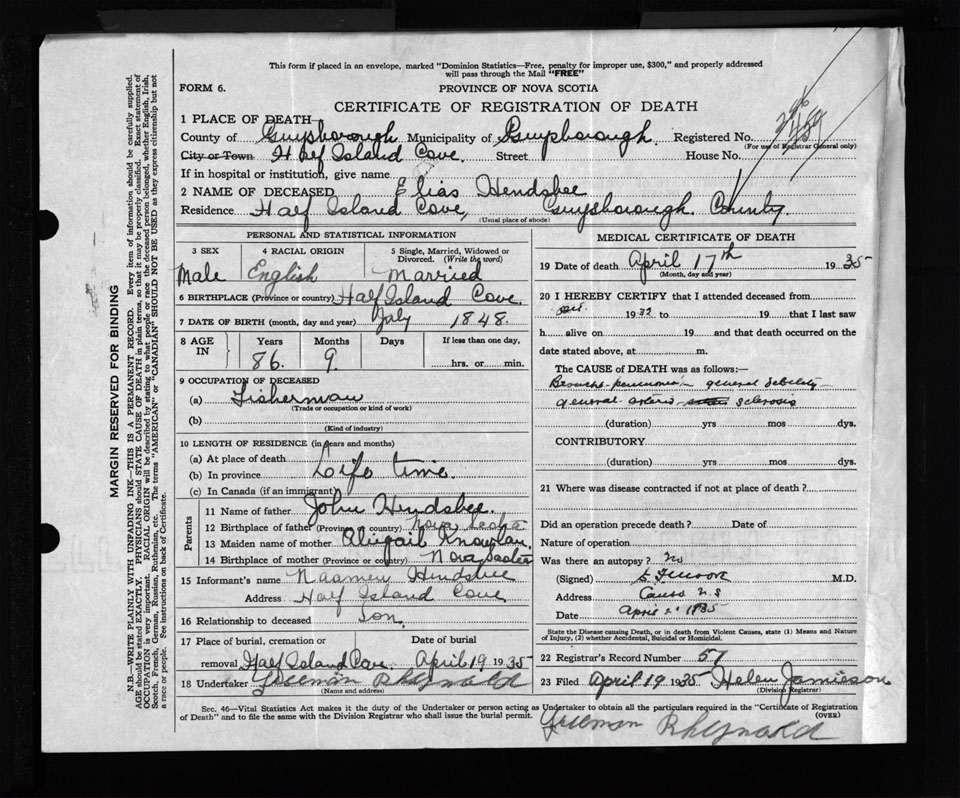 This form if placed in an envelope, marked "Dominion Statistics—Free, penalty for improper use, $300," and properly addressed
will pass through the Mail "FREE"
FORM 6.
PROVINCE OF NOVA SCOTIA
CERTIFICATE OF REGISTRATION OF DEATH
1 PLACE OF DEATH
County of Guysborough Municipality of Guysborough Registered No.
(For use of Registrar General only)
City or Town Half Island Cove. Street House No.
If in hospital or institution, give name
2 NAME OF DECEASED Elias Hendsbee
Residence Half Island Cove, Guysborough. County.
(Usual place of abode)
PERSONAL AND STATISTICAL INFORMATION
3 SEX 4 RACIAL ORIGIN 5 Single, Married, Widowed or
Divorced. (Write the word)
Male English Married
6 BIRTHPLACE (Province or country) Half Island Cove.
7 DATE OF BIRTH (month, day and year) July 1848.
8 AGE IN Years Months Days If less than one day,
86. 9. hrs. or min.
9 OCCUPATION OF DECEASED
(a) Fisherman
(Trade or occupation or kind of work)
(b)
(Kind of industry)
10 LENGTH OF RESIDENCE (in years and months)
(a) At place of death
(b) In province Life time.
(c) In Canada (if an immigrant)
Parents
11 Name of father John Hendsbee.
12 Birthplace of father (Province or country) Nova Scotia
13 Maiden name of mother Abigail Knowlan.
14 Birthplace of mother (Province or country) Nova Scotia
15 Informant's name Naamen Hendsbee
Address Half Island Cove
16 Relationship to deceased Son.
17 Place of burial, cremation or Date of burial
removal Half Island Cove. April 19 1935
18 Undertaker Freeman Rhynold
(Name and address)
MEDICAL CERTIFICATE OF DEATH
19 Date of death April 17th 1935
(Month, day and year)
20 I HEREBY CERTIFY that I attended deceased from
1932 to 19 that I last saw
h alive on 19 and that death occurred on the
date stated above, at m.
The CAUSE of DEATH was as follows:—
Broncho-pneumonia general debility
general arterio- sclerosis
(duration) yrs mos dys.
CONTRIBUTORY
(duration) yrs mos dys.
21 Where was disease contracted if not at place of death?
Did an operation precede death? Date of
Nature of operation
Was there an autopsy? no
(Signed) M.D.
Address Canso N.S
Date April
State the Disease causing Death, or in death from Violent Causes, state (1) Means and Nature
of Injury, (2) whether Accidental, Suicidal or Homicidal.
22 Registrar's Record Number 57
23 Filed April 19 1935 Helen Jamieson
(Division Registrar)
Sec. 46—Vital Statistics Act makes it the duty of the Undertaker or person acting as Undertaker to obtain all the particulars required in the "Certificate of Registration
of Death" and to file the same with the Division Registrar who shall issue the burial permit. (OVER)
Freeman Rhynold
MARGIN RESERVED FOR BINDING
N.B.—WRITE PLAINLY WITH UNFADING INK—THIS IS A PERMANENT RECORD. Every item of information should be carefully supplied.
AGE should be stated EXACTLY. PHYSICIANS should STATE CAUSE OF DEATH in plain terms, so that it may be properly classified. Exact statement of
OCCUPATION is very important. RACIAL ORIGIN will be described by stating to what people or race the deceased person belonged, whether English, Irish,
Scotch, French, German, Russian, Ruthenian, etc. The terms "AMERICAN" or "CANADIAN" SHOULD NOT BE USED as they express citizenship but not
a race or people. See instructions on back of Certificate.